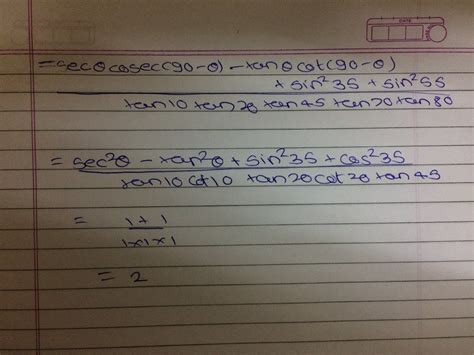 = secθ cosec(90-θ) - tanθ cot(90-θ)
+ sin²35 + sin²55
tan10 tan20 tan45 tan70 tan80
= sec²θ - tan²θ + sin²35 + cos²35
tan10 cot10 tan20 cot20 tan45
= 1+1
1×1×1
= 2